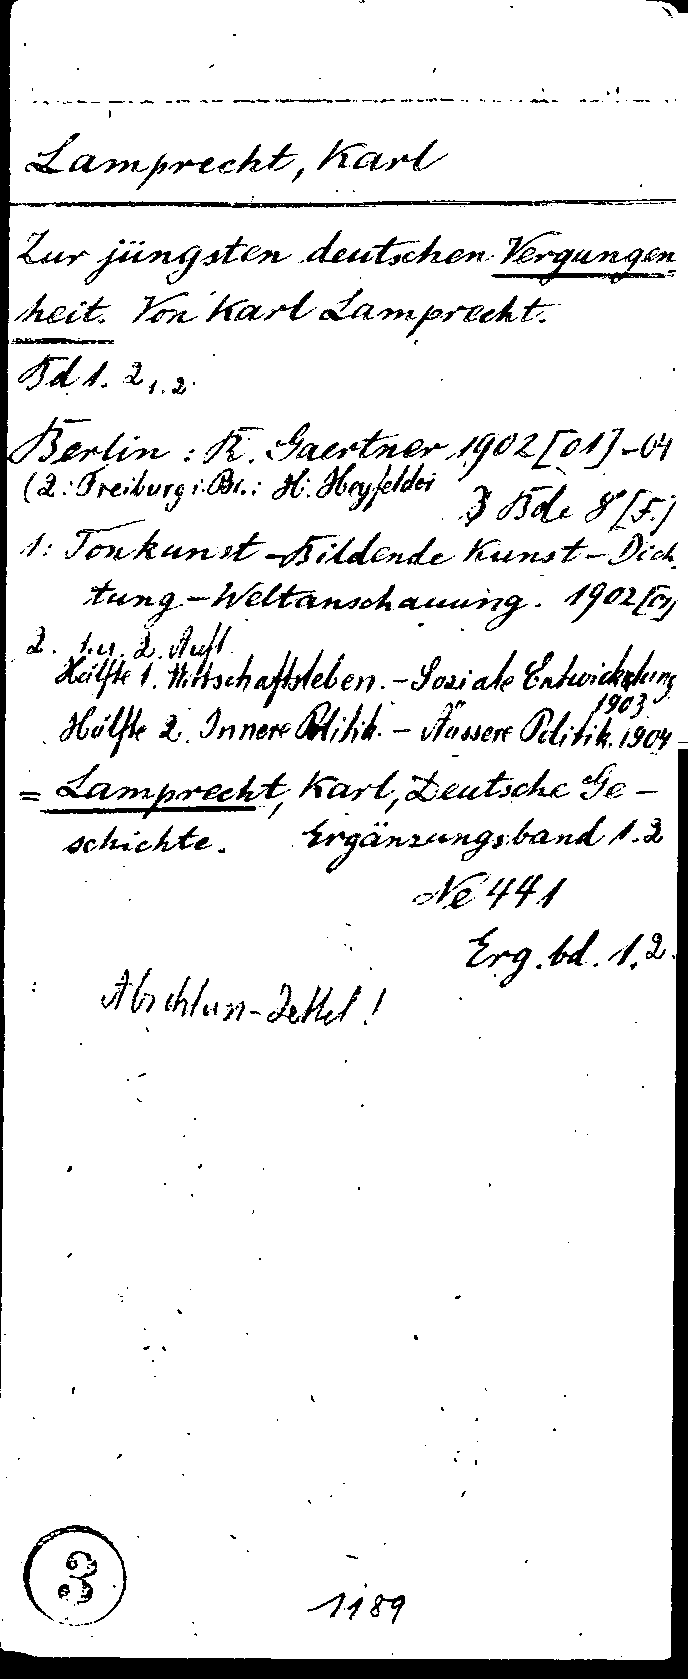 Lamprecht, Karl
Zur jüngsten deutschen Vergangen=
heit. Von Karl Lamprecht.
Bd 1. 2,1.2
Berlin : R. Gaertner 1902 [01] - 04
(2: Freiburg i. Br.: H. Heyfelder
3 Bde 8° [F.]
1: Tonkunst - Bildende Kunst - Dich
tung - Weltanschauung. 1902 [01]
2. 1. u. 2. Aufl.
Hälfte 1. Wirtschaftsleben. - Soziale Entwickelung
1903
Hälfte 2. Innere Politik. - Äussere Politik. 1904
= Lamprecht, Karl, Deutsche Ge-
schichte. Ergänzungsband 1.2
Ne 441
Erg. bd. 1.2.
Abschluss-Zettel!
3
1189